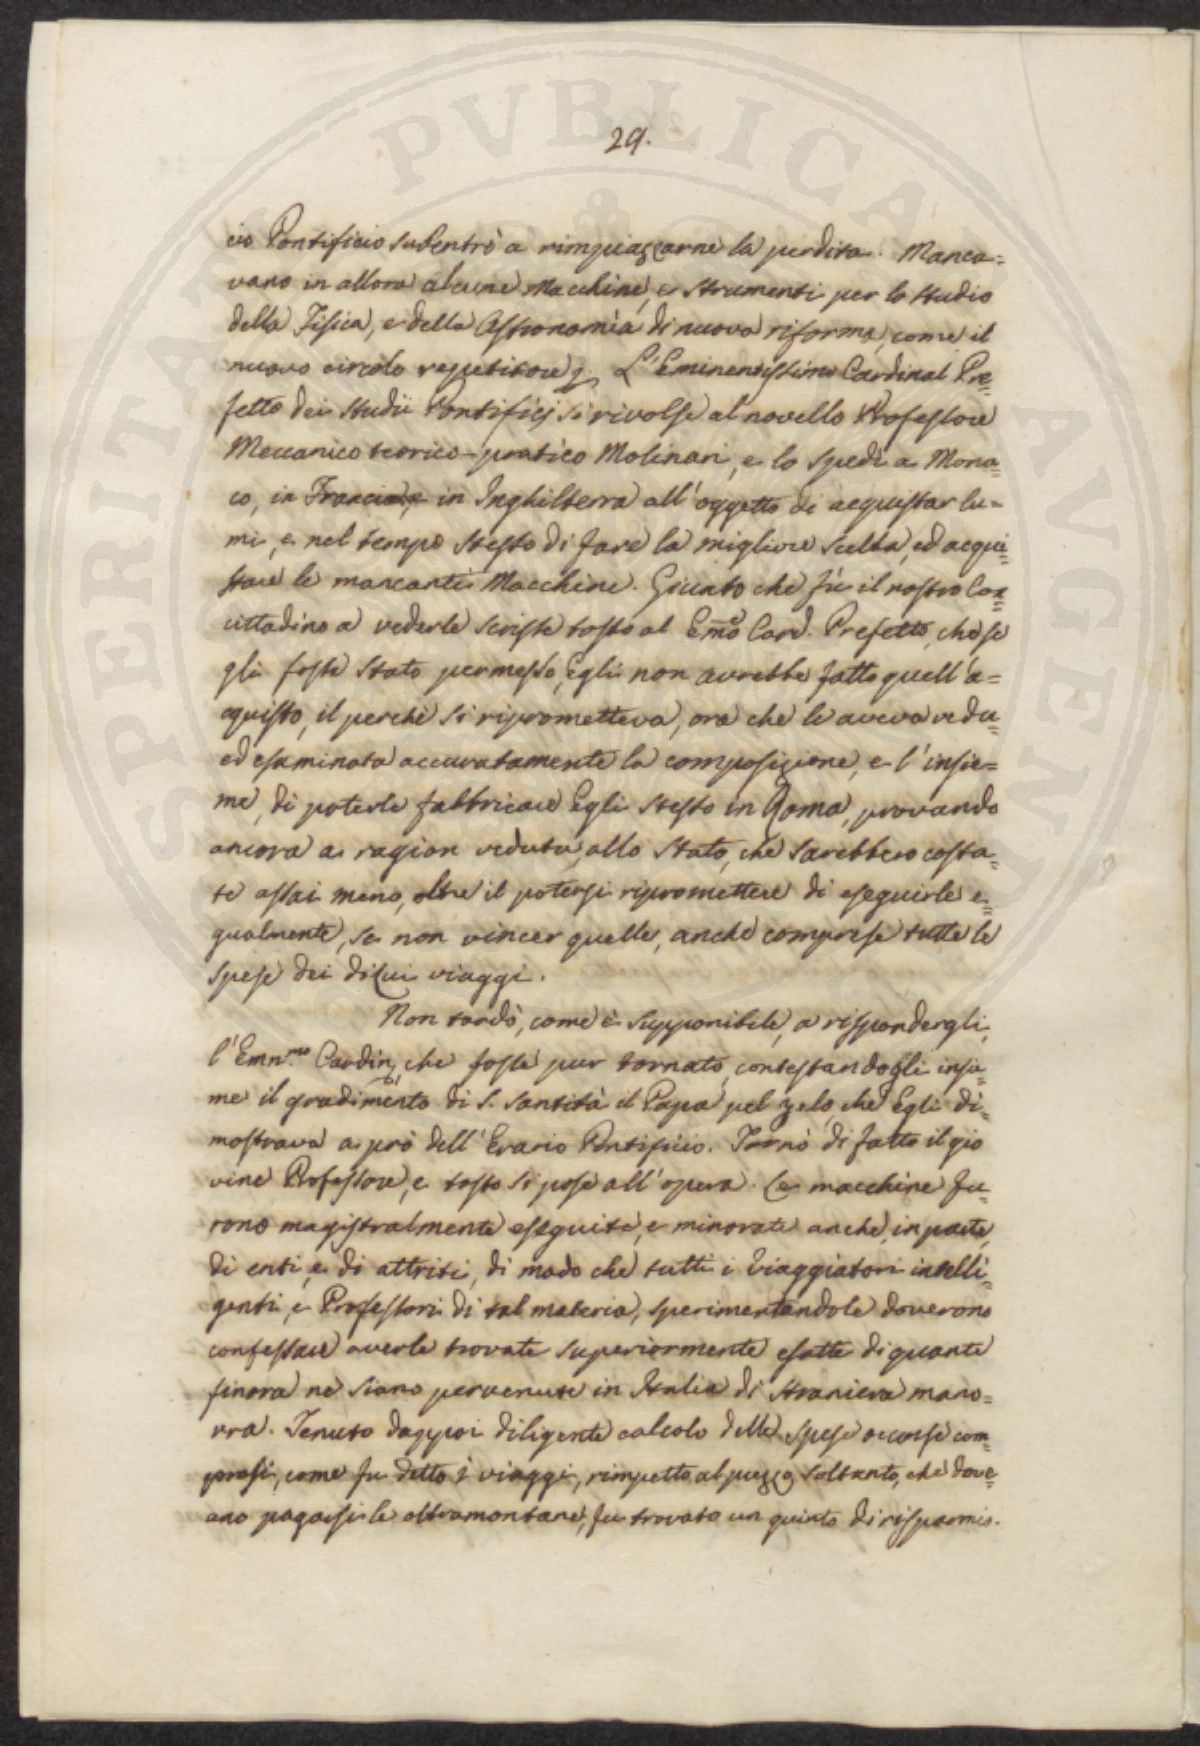 29.
io Pontificio subentrò a rimpiazzarne la perdita. Manca=
vano in allora alcune Macchine, e Strumenti per lo studio
della Fisica, e della Astronomia di nuova riforma, come il
nuovo circolo repetitore L'Eminentissimo Cardinal Pre=
fetto dei Studii Pontificj si rivolse al novello Professore
Meccanico teorico-pratico Molinari, e lo spedì a Mona=
co, in Francia, e in Inghilterra all'oggetto di acquistar lu=
mi, e nel tempo stesso di fare la migliore scelta, ed acqui=
stare le mancanti Macchine. Giunto che fù il nostro Con=
cittadino a vederle scrisse tosto al Emo Card. Prefetto, che se
gli fosse stato permesso, Egli non avrebbe fatto quell'a=
cquisto, il perchè si riprometteva, ora che le aveva vedu=
ed esaminata accuratamente la composizione, e l'insie=
me, di poterle fabbricare Egli stesso in Roma, provando
ancora a ragion veduta, allo Stato, che sarebbero costa=
te assai meno, oltre il potersi ripromettere di eseguirle e=
gualmente, se non vincer quelle, anche comprese tutte le
spese dei di lui viaggi.
Non tardò, come è supponibile, a rispondergli,
l'Emn.mo Cardin, che fosse pur tornato, contestandogli insie=
me il gradimento di S. Santità il Papa pel zelo, che Egli di=
mostrava a prò dell'Erario Pontificio. Tornò di fatto il gio
vine Professore, e tosto si pose all'opera. Le macchine fu=
rono magistralmente eseguite, e minorate anche, in parte,
di enti, e di attriti, di modo che tutti i Viaggiatori intelli=
genti, e Professori di tal materia, sperimentandole doverono
confessare averle trovate superiormente esatte di quante
finora ne siano pervenute in Italia di straniera mano=
vra. Tenuto dappoi diligente calcolo delle spese occorse com=
presi, come fu detto i viaggi, rimpetto al prezzo soltanto, che dove=
ano pagarsi le oltramontane, fu trovato un quinto di risparmio.
SPERITATI PVBLICAE AVGEN